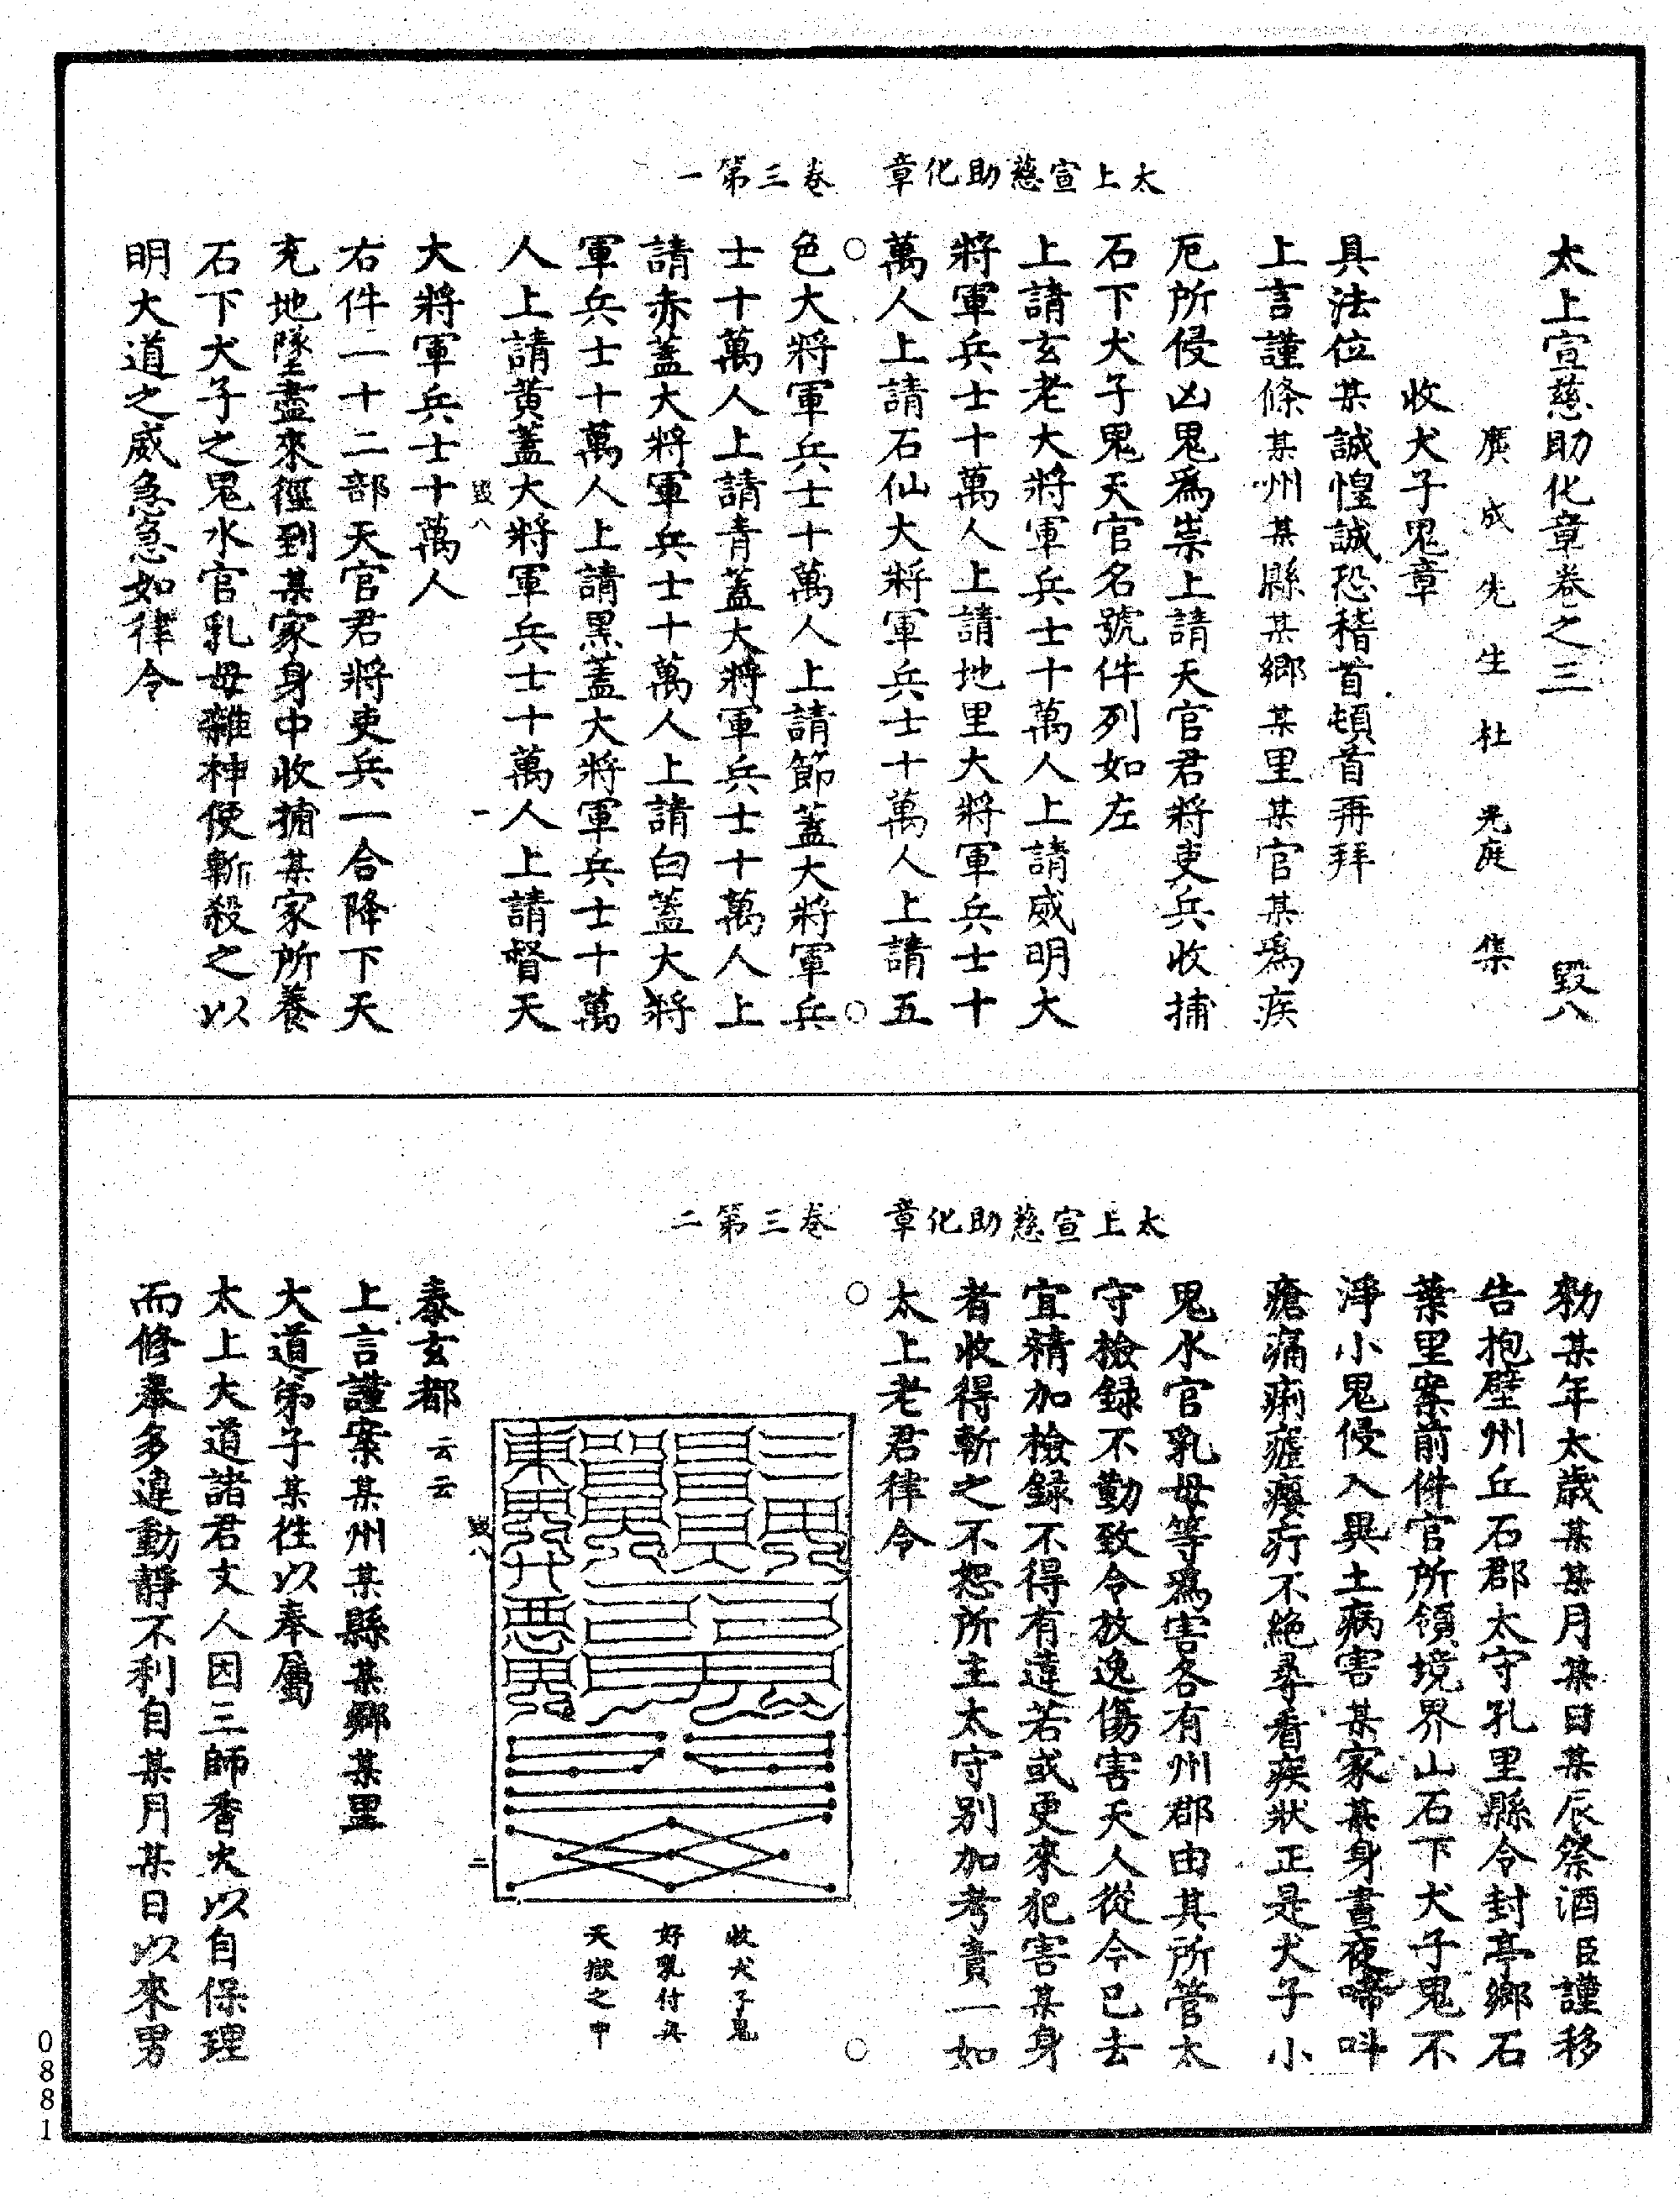 太上宣慈助化章 卷三第一
太上宣慈助化章卷之三 毀八
廣成先生杜光庭集
收犬子鬼章
具法位某誠惶誠恐稽首頓首再拜
上言謹條某州某縣某鄉某里某官某爲疾
厄所侵凶鬼爲祟上請天官君將吏兵收捕
石下犬子鬼天官名號件列如左
上請玄老大將軍兵士十萬人上請威明大
將軍兵士十萬人上請地里大將軍兵士十
萬人上請石仙大將軍兵士十萬人上請五
色大將軍兵士十萬人上請節蓋大將軍兵
士十萬人上請青蓋大將軍兵士十萬人上
請赤蓋大將軍兵士十萬人上請白蓋大將
軍兵士十萬人上請黑蓋大將軍兵士十萬
人上請黄蓋大將軍兵士十萬人上請督天
毀八 一
大將軍兵士十萬人
右件二十二部天官君將吏兵一合降下天
充地墜盡來徑到某家身中收捕某家所養
石下犬子之鬼水官乳母雜神便斬殺之以
明大道之威急急如律令
太上宣慈助化章 卷三第二
勑某年太歲某某月某日某辰祭酒臣謹移
告抱壁州丘石郡太守孔里縣令封亭鄉石
葉里案前件官所領境界山石下犬子鬼不
淨小鬼侵入異土病害某家某身晝夜啼呌
瘡痛痢瘧癭疔不絶尋看疾狀正是犬子小
鬼水官乳母等爲害各有州郡由其所管太
守檢録不勤致令放逸傷害天人從今已去
宜精加檢録不得有違若或更來犯害某身
者收得斬之不恕所主太守别加考責一如
太上老君律令
收犬子鬼
好乳付與
天獄之中
毀八 二
泰玄都云云
上言謹案某州某縣某鄉某里
大道弟子某徃以奉屬
太上大道諸君丈人因三師香火以自保理
而修奉多違動靜不利自某月某日以來男
0881